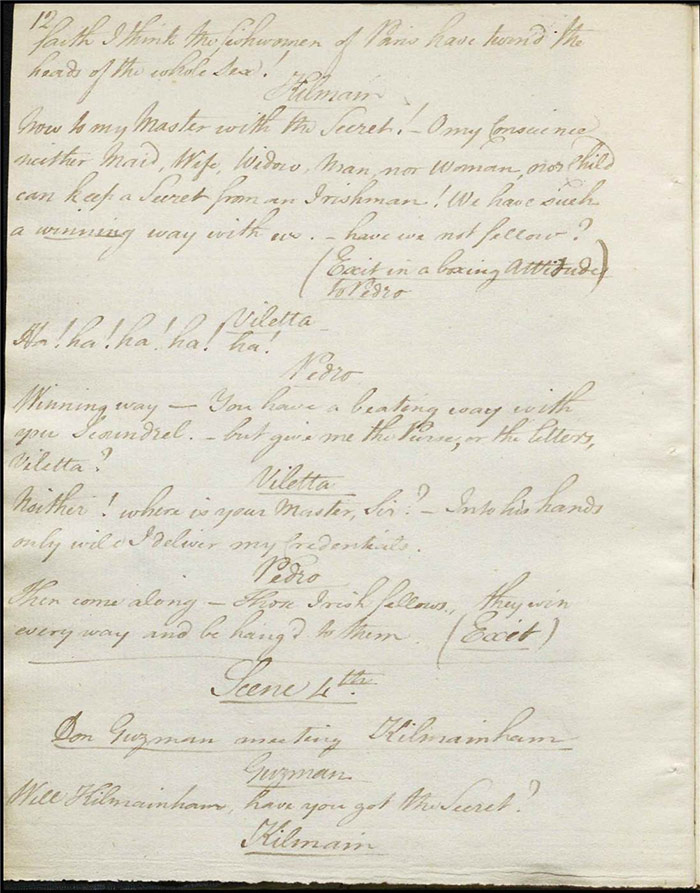 12
faith I think the fishwomen of Paris have turn'd the
heads of the whole Sex!
Kilmain
Now to my Master with the Secret! - O my Conscience
neither Maid, Wife, Widow, Man, nor Woman, nor Child
can keep a Secret from an Irishman! We have such
a winning way with us. - have we not fellow?
(Exit in a boxing Attitude)
to Pedro
Viletta
Ha! ha! ha! ha! ha!
Pedro
Winning way - You have a beating way with
you Scoundrel. - but give me the Purse, or the letters,
Viletta?
Viletta
Neither! where is your Master, Sir? - Into his hands
only will I deliver my Credentials.
Pedro
Then come along - Those Irish fellows, they win
every way and be hang'd to them. (Exit)
Scene 4th.
Don Guzman meeting Kilmainham
Guzman
Well Kilmainham, have you got the Secret?
Kilmain